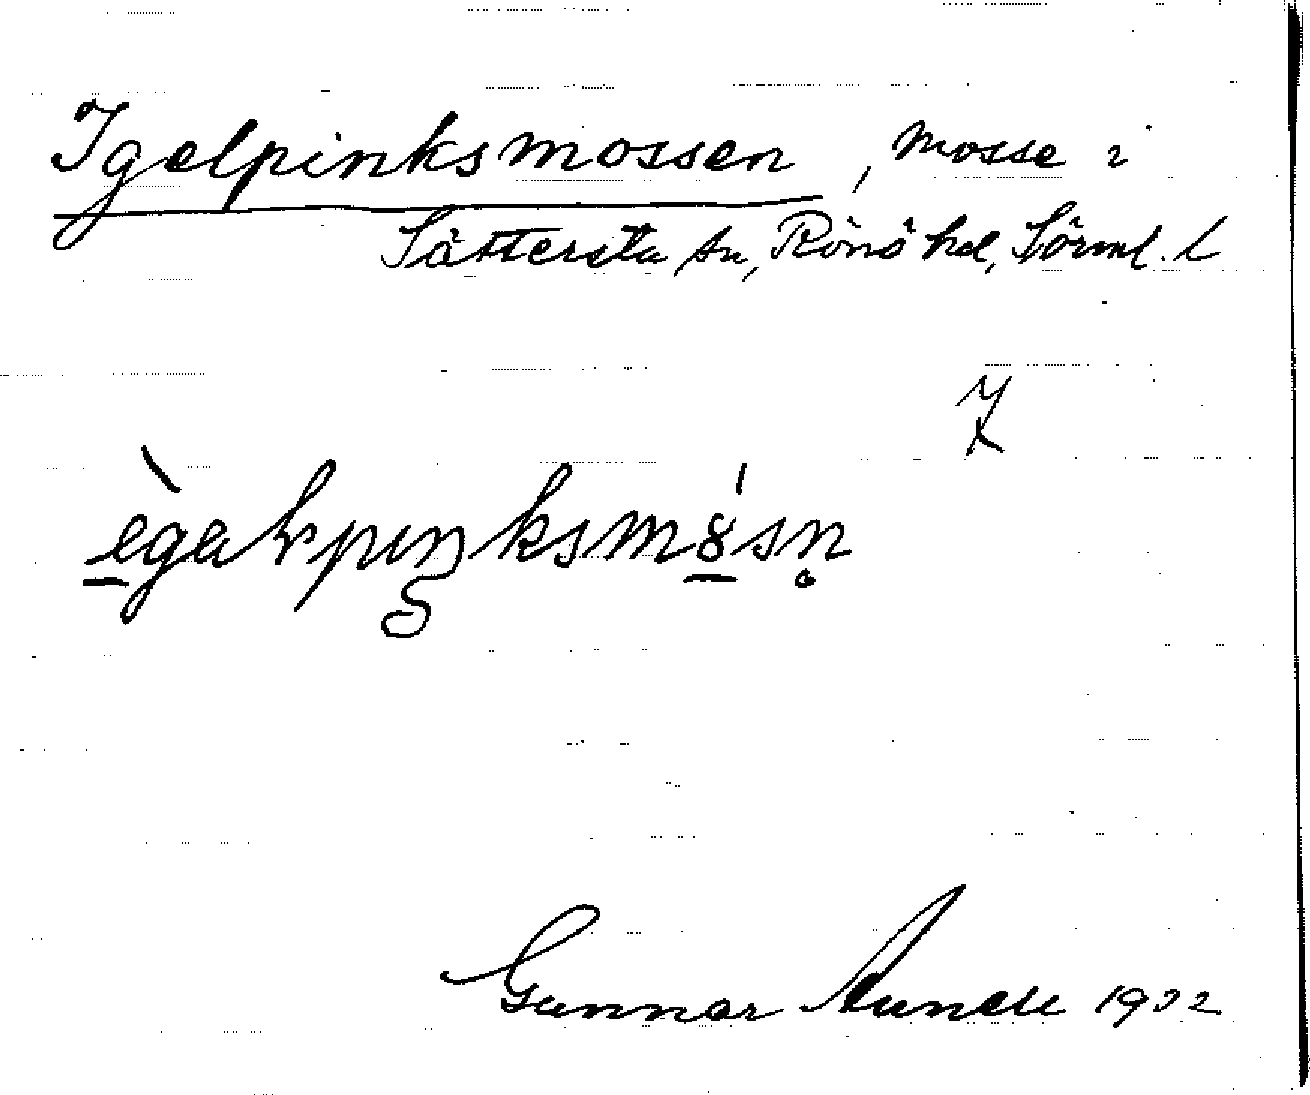 Igelpinksmossen, mosse i
Sättersta sn, Rönö hd, Sörml. l
ègalpiŋksmósn̥
Gunnar
1932